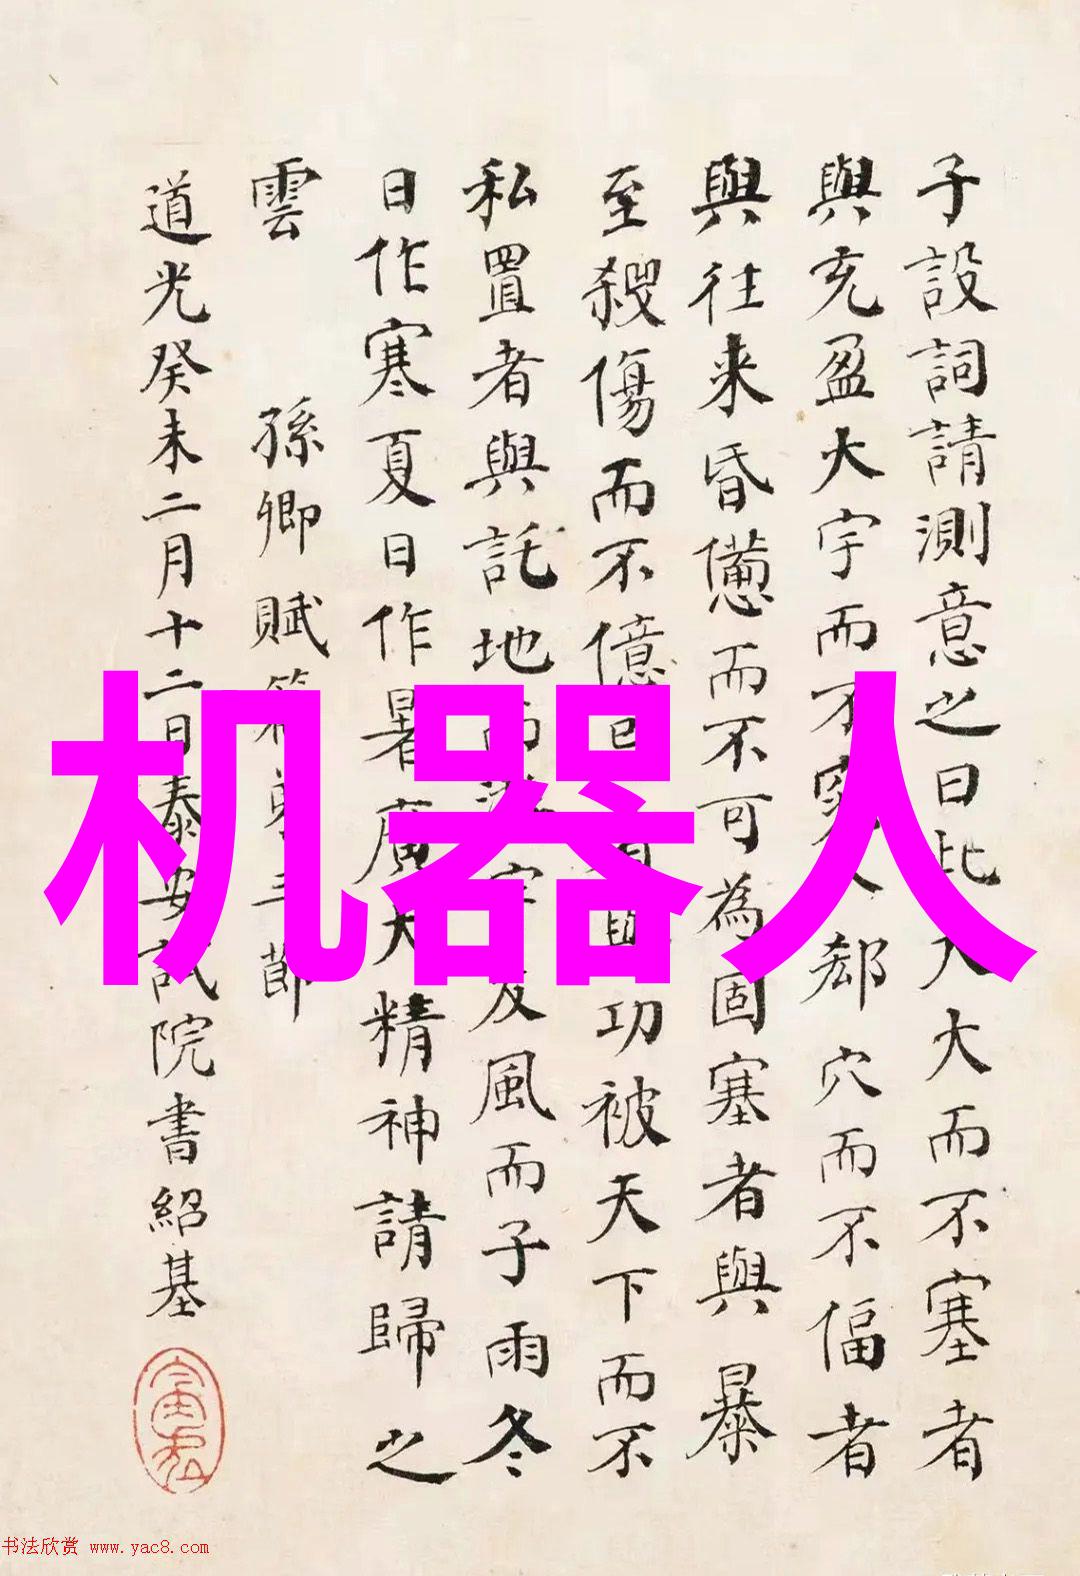 子設詞請測意之曰此人大而不塞者
與充盈大宇而不窕入郄穴而不偪者
與往來昏憊而不可為固塞者與暴
至殺傷而不億忌者與功被天下而不
私置者與託地而游宇友風而子雨冬
日作寒夏日作暑廣大精神請歸之
雲 孫卿賦篇 三節
道光癸未二月十二日泰安試院書紹基
机器人
书法欣赏 www.yac8.com